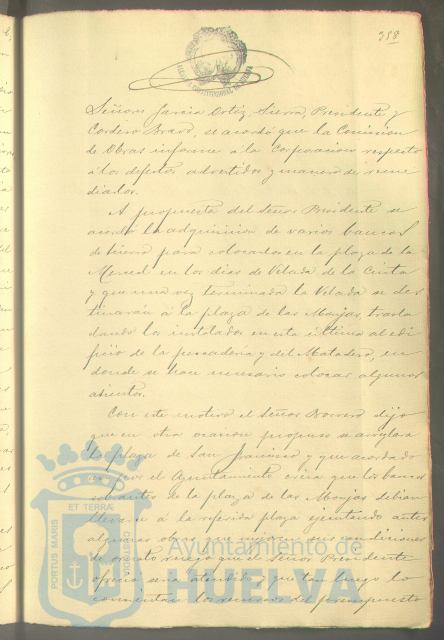 358
Señores García Ortiz, Sierra, Presidente y
Cordero Bravo, se acordó que la Comision
de Obras informe á la Corporacion respecto
á los defectos advertidos y manera de reme
diarlos.
A propuesta del Señor Presidente se
acordó la adquisicion de varios bancos
de hierro para colocarlos en la plaza de la
Merced en los dias de Velada de la Cinta
y que una vez terminada la Velada se des
tinarán á la plaza de las Monjas, trasla
dando los instalados en esta última al edi
ficio de la pescaderia y del Matadero, en
donde se hace necesario colocar algunos
asientos.
Con este motivo el Señor Borrero dijo
que en otra ocasion propuso se arreglara
la plaza de San Francisco y que acordado
por el Ayuntamiento creia que los bancos
sobrantes de la plaza de las Monjas debian
llevarse á la referida plaza ejecutando antes
algunas obras que mejoren sus condiciones
de ornato ruego que el Señor Presidente
ofreció sería atendido y que tan luego lo
consientan los recursos del presupuesto
PORTUS MARIS
ET TERRÆ
Ayuntamiento de
HUELVA